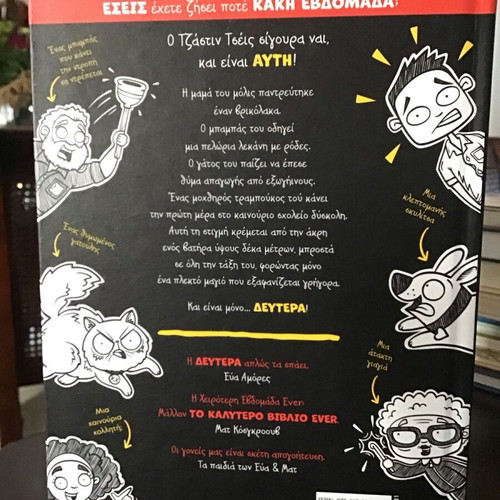 ΕΣΕΙΣ έχετε ζήσει ποτέ ΚΑΚΗ ΕΒΔΟΜΑΔΑ;
Ένας μπαμπάς
που κάνει
την ντροπή
να ντρέπεται
Ο Τζάστιν Τσέις σίγουρα ναι,
και είναι ΑΥΤΗ!
Η μαμά του μόλις παντρεύτηκε
έναν βρικόλακα.
Ο μπαμπάς του οδηγεί
μια πελώρια λεκάνη με ρόδες.
Ο γάτος του παίζει να έπεσε
θύμα απαγωγής από εξωγήινους.
Ένας μοχθηρός τραμπούκος τού κάνει
την πρώτη μέρα στο καινούριο σχολείο δύσκολη.
Αυτή τη στιγμή κρέμεται από την άκρη
ενός βατήρα ύψους δέκα μέτρων, μπροστά
σε όλη την τάξη του, φορώντας μόνο
ένα πλεκτό μαγιό που εξαφανίζεται γρήγορα.
Και είναι μόνο... ΔΕΥΤΕΡΑ!
Μια
κλεπτομανής
σκυλίτσα
Ένας θυμωμένος
γατούλης
Μια
άτακτη
γιαγιά
Η ΔΕΥΤΕΡΑ απλώς τα σπάει.
Εύα Αμόρες
Η Χειρότερη Εβδομάδα Ever;
Μάλλον ΤΟ ΚΑΛΥΤΕΡΟ ΒΙΒΛΙΟ EVER.
Ματ Κόσγκροουβ
Μια
καινούρια
κολλητή
Οι γονείς μας είναι σκέτη απογοήτευση.
Τα παιδιά των Εύα & Ματ